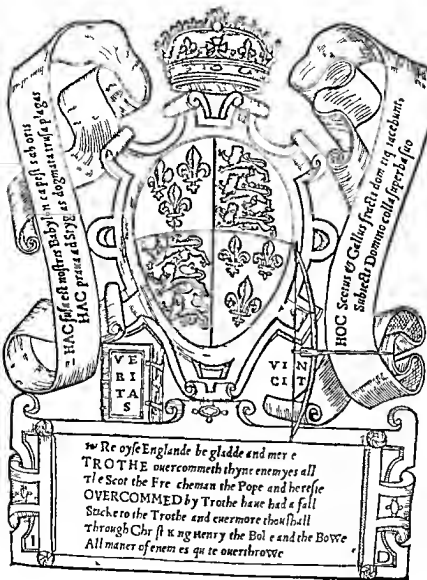 HAC fusa est nostris Babylon oris
HAC praua ad Styg as dogmata trusa plagas
HOC Scotus & Gallus fracta dom tiq; iacebunt,
Subiectis Domino colla superba suo
VE
RI
TA
S
VIN
CI T
Re oyse Englande be gladde and mer e
TROTHE ouercommeth thyne enemyes all
The Scot the Fre cheman the Pope and heresie
OVERCOMMED by Trothe haue had a fall
Sticke to the Trothe and euermore thou shall
Through Chr st K ng Henry the Bo e and the Bowe
All maner of enem es qu te ouerthrowe